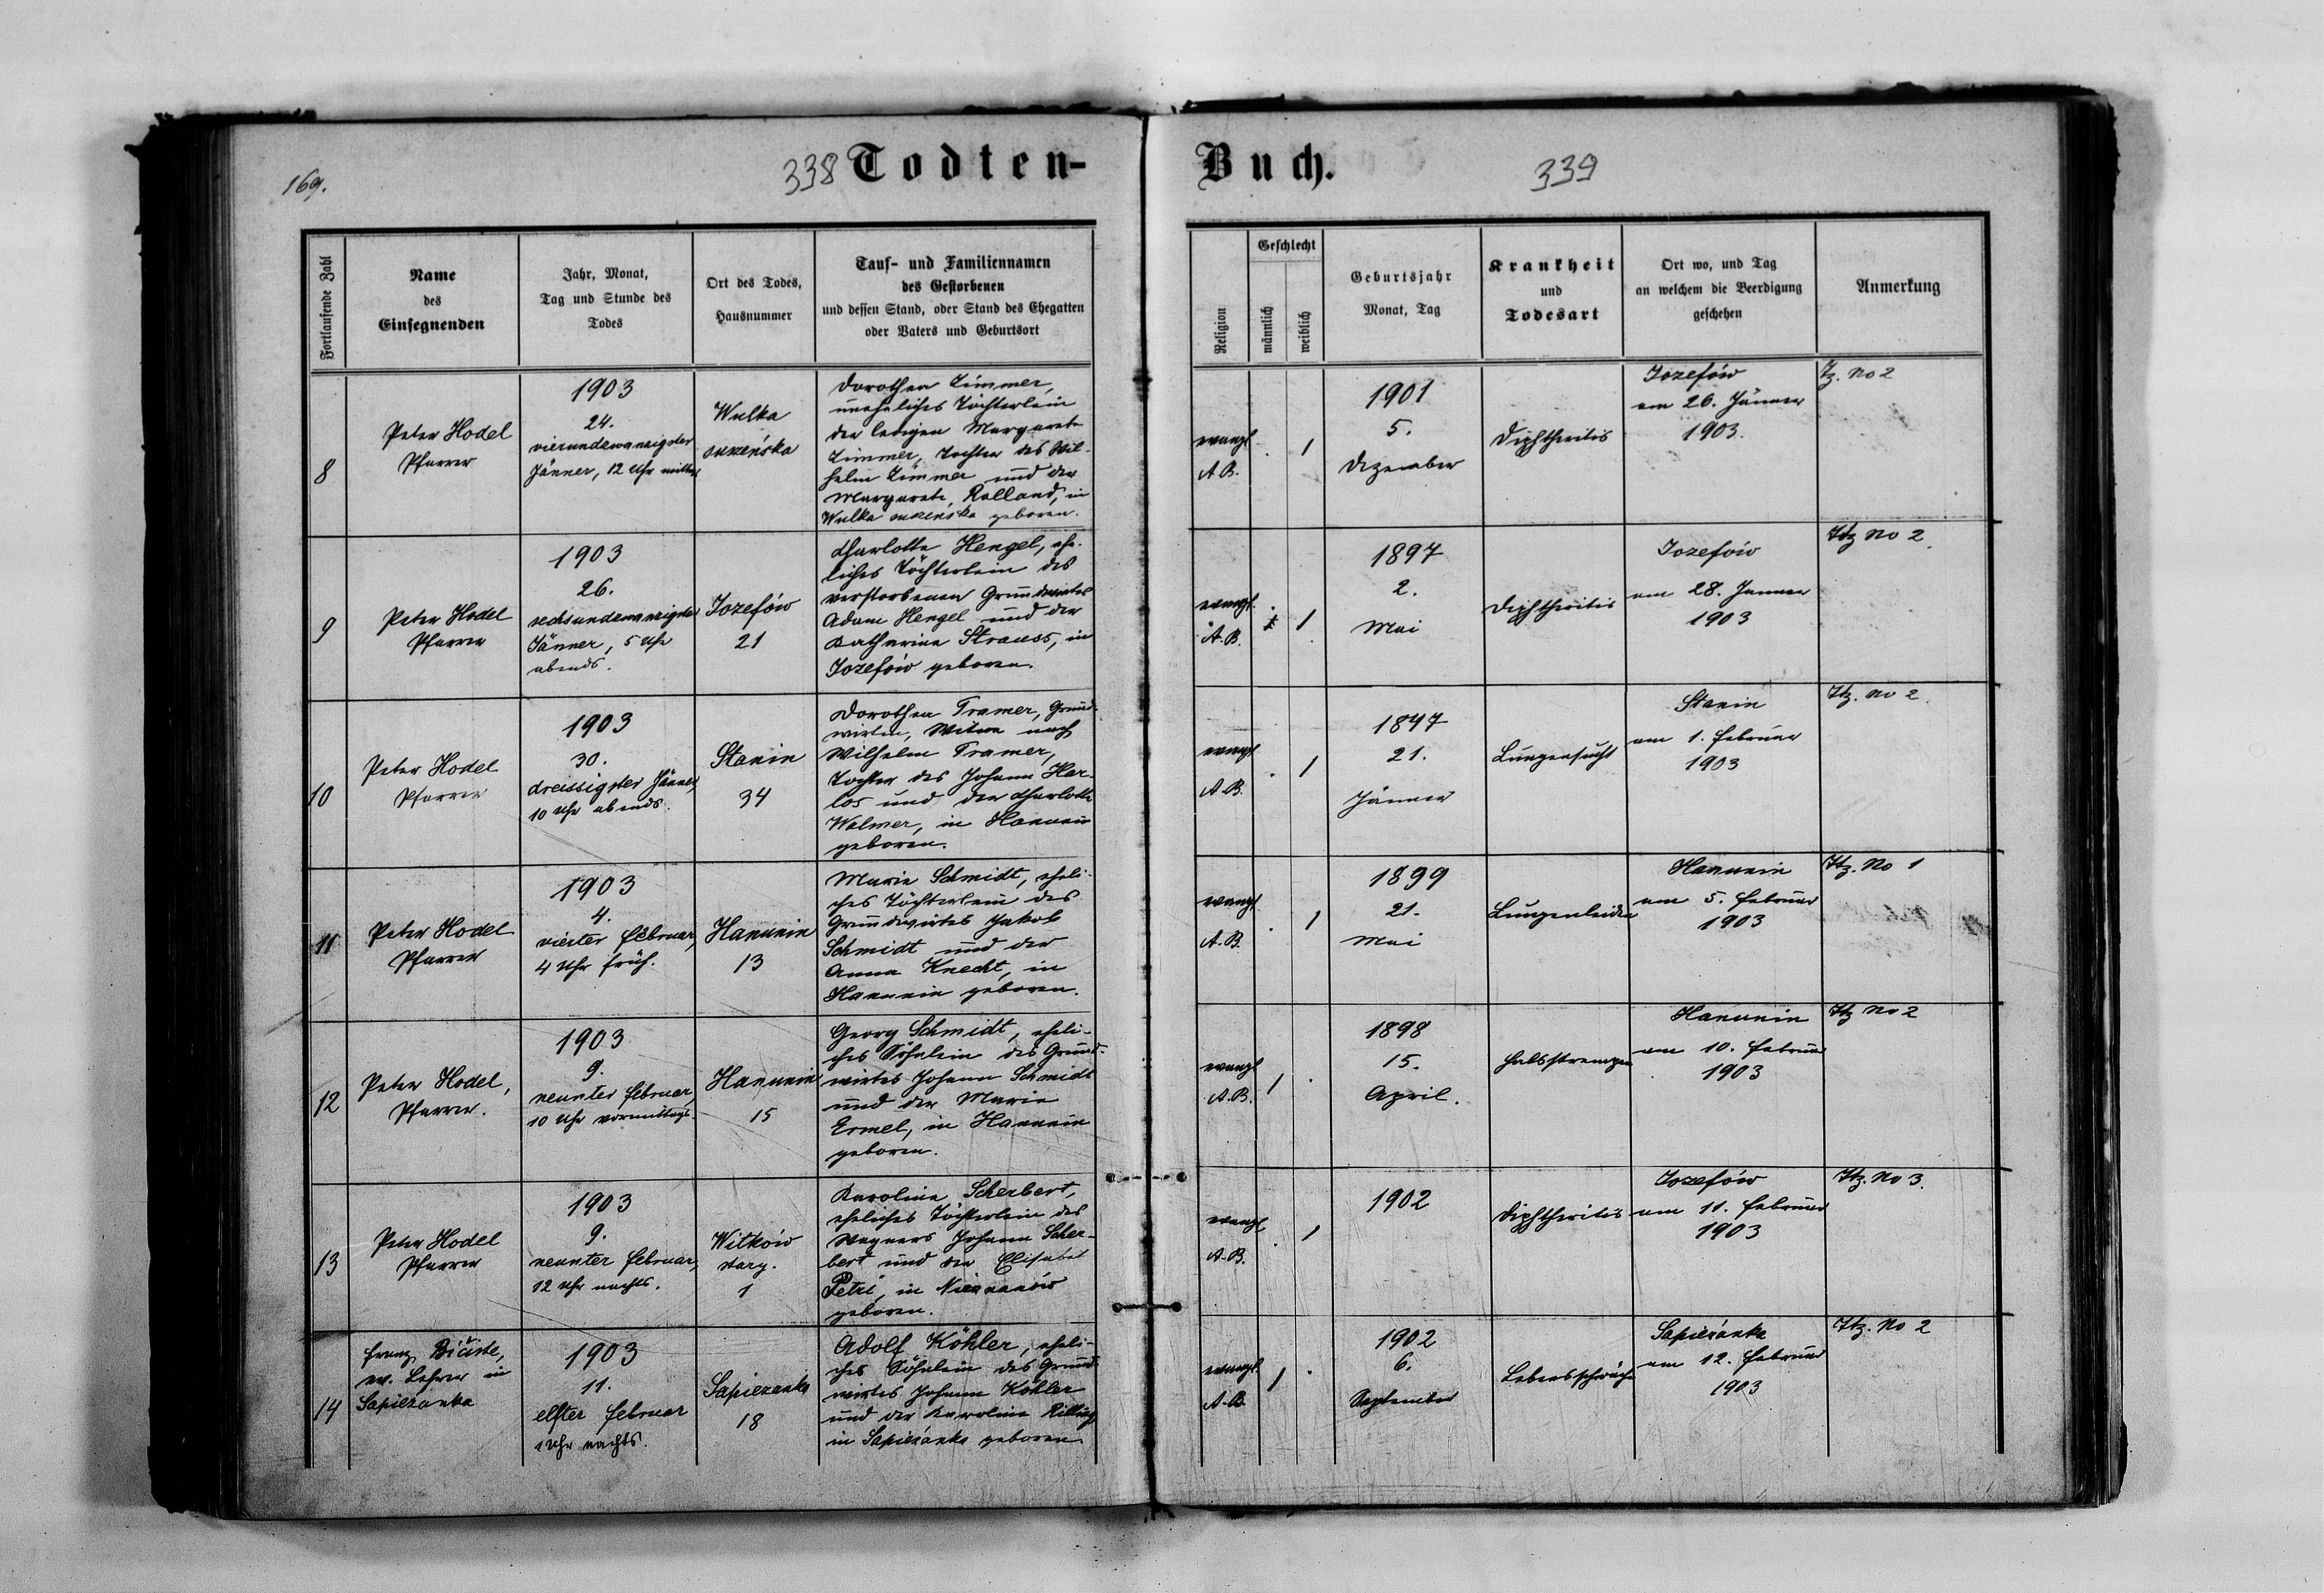 169.
338
Todten-
Buch.
339
Fortlaufende Zahl
Name
des
Einsegnenden
Jahr, Monat,
Tag und Stunde des
Todes
Ort des Todes,
Hausnummer
Tauf- und Familiennamen
des Gestorbenen
und dessen Stand, oder Stand des Ehegatten
oder Vaters und Geburtsort
Religion
Geschlecht
männlich
weiblich
Geburtsjahr
Monat, Tag
Krankheit
und
Todesart
Ort wo, und Tag
an welchem die Beerdigung
geschehen
Anmerkung
8
Peter Hodel
Pfarrer
1903
24.
vierundzwanzigster
Jänner, 12 Uhr mittags
Wulka
suszeńska
Dorothea Zimmer,
uneheliches Töchterlein
der ledigen Margarete
Zimmer, Tochter des Wil-
helm Zimmer und der
Margarete Rolland, in
Wulka suszeńska geboren.
evangl
A.B.
1
1901
5.
Dezember
Diphtheritis
Jozefów
am 26. Jänner
1903.
Itz. No 2
9
Peter Hodel
Pfarrer
1903
26.
sechsundzwanzigster
Jänner, 5 Uhr
abends.
Jozefów
21
Charlotte Hengel, ehe-
liches Töchterlein des
verstorbenen Grundwirtes
Adam Hengel und der
Katharina Strauss, in
Jozefów geboren.
evangl.
A.B.
1
1897
2.
Mai
Diphtheritis
Jozefów
am 28. Jänner
1903
Itz No 2
10
Peter Hodel
Pfarrer
1903
30.
dreissigster Jänner,
10 Uhr abends.
Stanin
34
Dorothea Tramer, Grund-
wirtin, Witwe nach
Wilhelm Tramer,
Tochter des Johann Har-
los und der Charlotte
Walmer, in Hanunin
geboren.
evangl
A.B.
1
1847
21.
Jänner
Lungensucht
Stanin
am 1. Februar
1903
Itz. No 2
11
Peter Hodel
Pfarrer
1903
4.
vierter Februar,
4 Uhr früh.
Hanunin
13
Maria Schmidt, eheli-
ches Töchterlein des
Grundwirtes Jakob
Schmidt und der
Anna Knecht, in
Hanunin geboren.
evangl
A.B.
1
1899
21.
Mai
Lungenleiden
Hanunin
am 5. Februar
1903
Itz. No 1
12
Peter Hodel,
Pfarrer.
1903
9.
neunter Februar,
10 Uhr vormittags.
Hanunin
15
Georg Schmidt, eheli-
ches Söhnlein des Grund-
wirtes Johann Schmidt
und der Maria
Ermel, in Hanunin
geboren.
evangl
A.B.
1
1898
15.
April.
Hanunin
am 10. Februar
1903
Itz No 2
13
Peter Hodel
Pfarrer
1903
9.
neunter Februar,
12 Uhr nachts.
Witków
stary.
1
Karolina Scherbert,
eheliches Töchterlein des
Wagners Johann Scher-
bert und der Elisabet
Petri, in Nieznanów
geboren.
evangl
A.B.
1
1902
Diphtheritis
Jozefów
am 11. Februar
1903
Itz. No 3.
14
Franz
ev. Lehrer in
Sapieżanka
1903
11.
elfter Februar
1 Uhr nachts.
Sapiezanka
18
Adolf Köhler, eheli-
ches Söhnlein des Grund-
wirtes Johann Köhler
und der Karolina Rilling
in Sapieżanka geboren.
evangl
A.B.
1
1902
6.
September
Lebensschwäche
Sapieżanka
am 12. Februar
1903
Itz. No 2